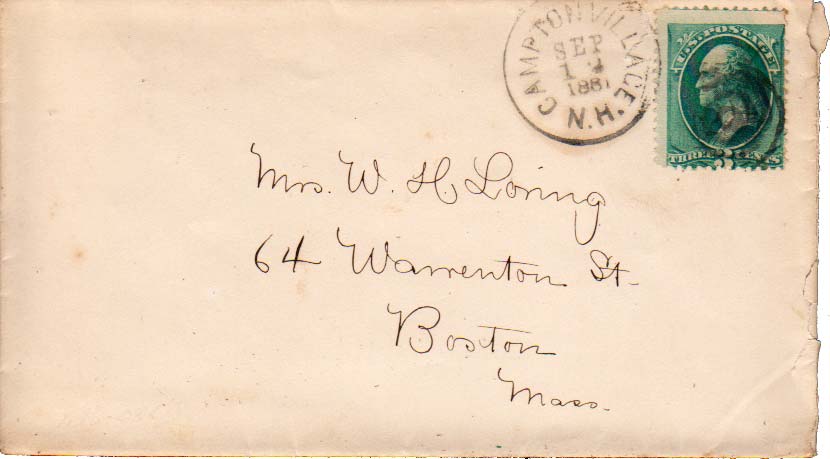 CAMPTON VILLAGE,
SEP
1881
N.H.
U.S. POSTAGE
THREE 3 CENTS
Mrs. W. H. Loring
64 Warrenton St.
Boston
Mass.